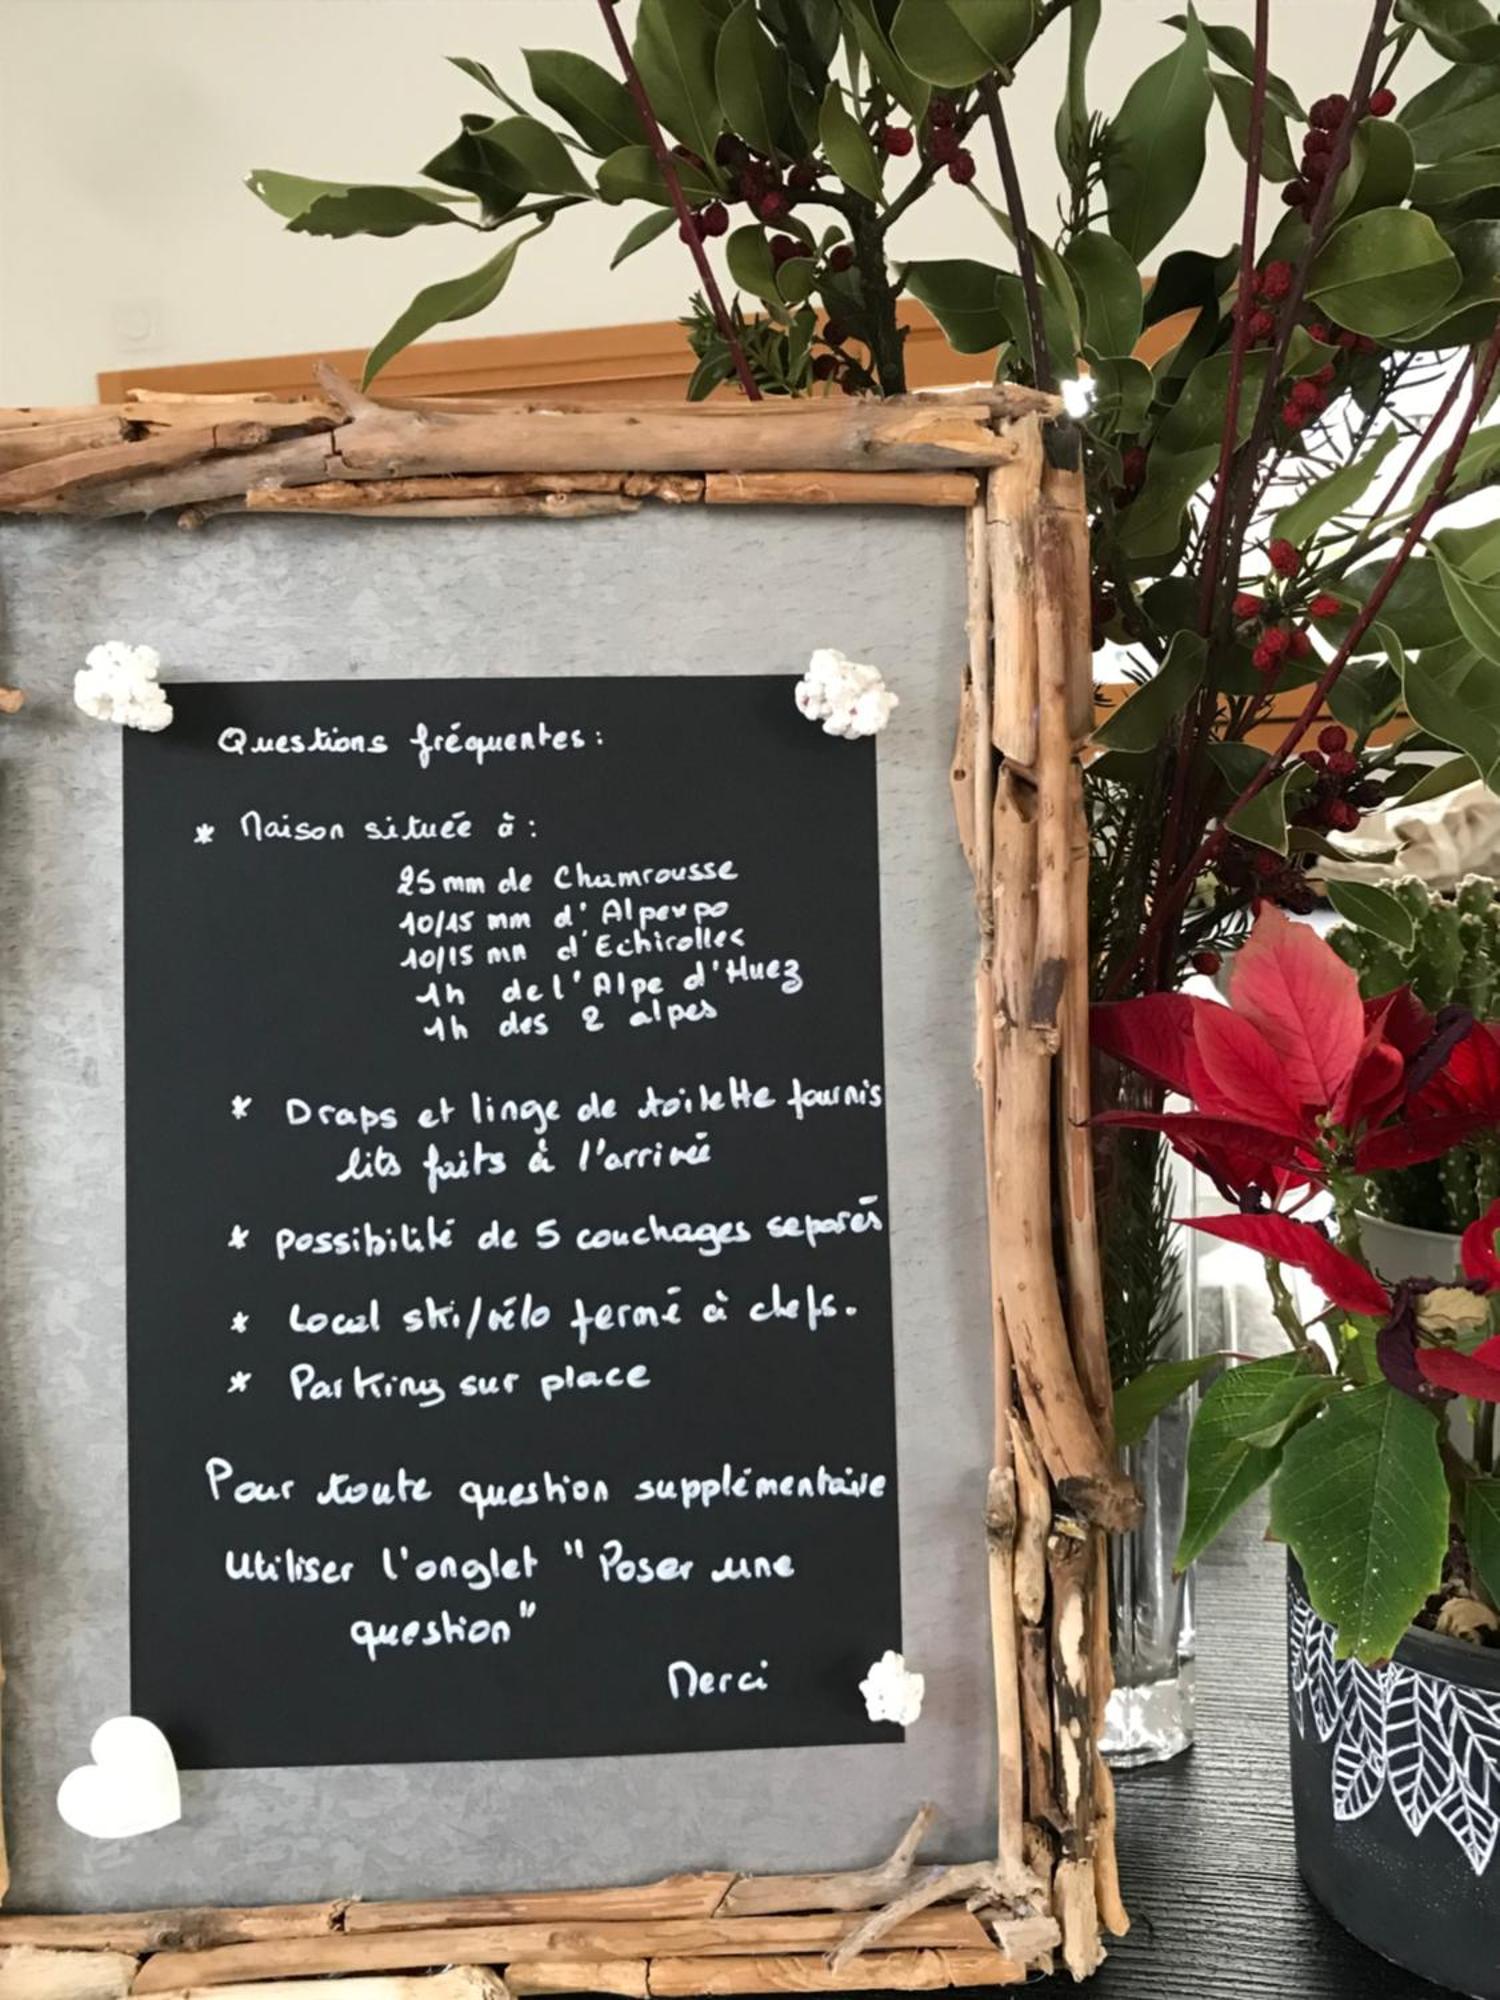 Questions fréquentes :
* Maison située à :
25 mm de Chamrousse
10/15 mm d'Alpexpo
10/15 mn d'Echirolles
1h de l'Alpe d'Huez
1h des 2 alpes
* Draps et linge de toilette fournis
lits faits à l'arrivée
* possibilité de 5 couchages separés
* Local ski/vélo fermé à clefs.
* Parking sur place
Pour toute question supplémentaire
Utiliser l'onglet "Poser une
question"
Merci